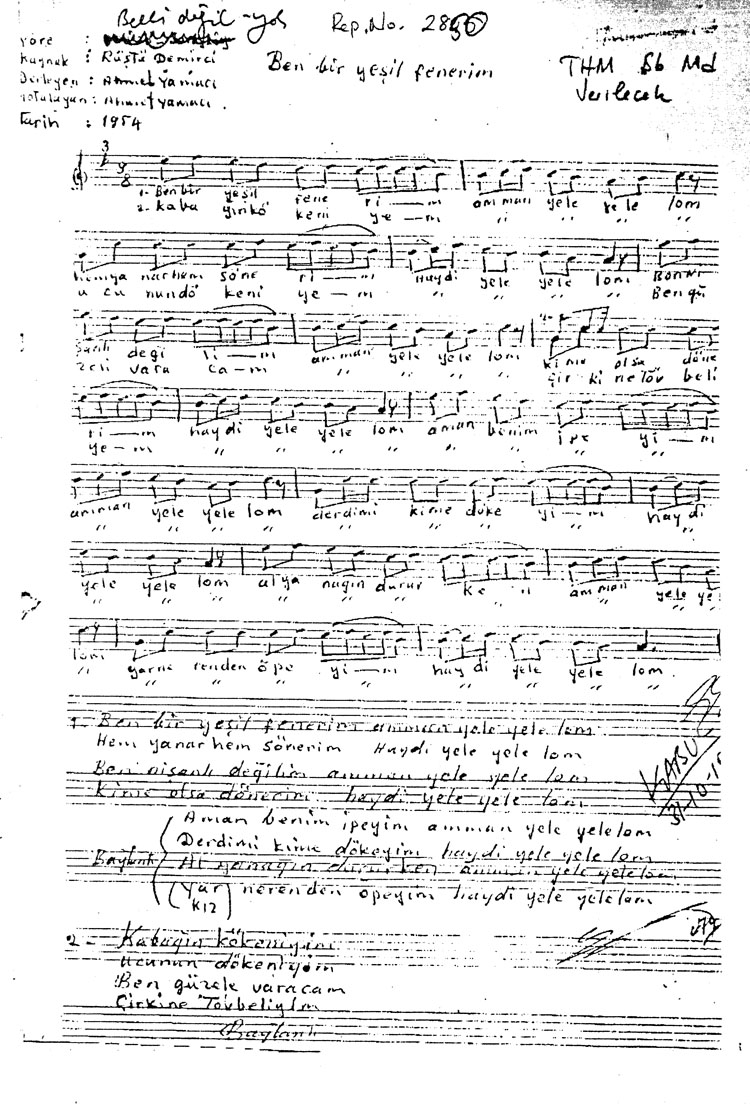 Belli değil - yok
Rep. No. 2850
Yöre :
Kaynak : Rüştü Demirci
Derleyen : Ahmet Yamacı
Notalayan : Ahmet Yamacı
Tarih : 1954
Ben bir yeşil fenerim
THM Şb Md
Verilecek
3
9
8
1- Ben bir yeşil fene ri — m amman yele yele lom
2- Kaba ğın kö keni ye — m " " " "
hemya narhem söne ri — m Haydi yele yele lom Ben ni
u cu nundö keni ye — m " " " " Ben gü
şanlı deği li — m amman yele yele lom kime olsa döne
zeli vara ca — m " " " " çir ki ne töv beli
ri — m haydi yele yele lom aman benim ipe yi — m
ye — m " " " " " " " "
amman yele yele lom derdimi kime döke yi — m haydi
" " " " " " " " "
yele yele lom al ya nağın durur ke — n amman yele ye
" " " " " " " " "
lom yarne renden öpe yi — m haydi yele yele lom.
" " " " " " "
1- Ben bir yeşil fenerim amman yele yele lom
Hem yanar hem sönerim Haydi yele yele lom
Ben nişanlı değilim amman yele yele lom
Kime olsa dönerim haydi yele yele lom
Aman benim ipeyim amman yele yele lom
Derdimi kime dökeyim haydi yele yele lom
Bağlantı
Al yanağın dururken amman yele yele lom
(Yar nerenden öpeyim haydi yele yele lom
Kız)
2- Kabağın kökeniyim
Ucunun dökeniyim
Ben güzele varacam
Çirkine Tövbeliyim
Bağlantı